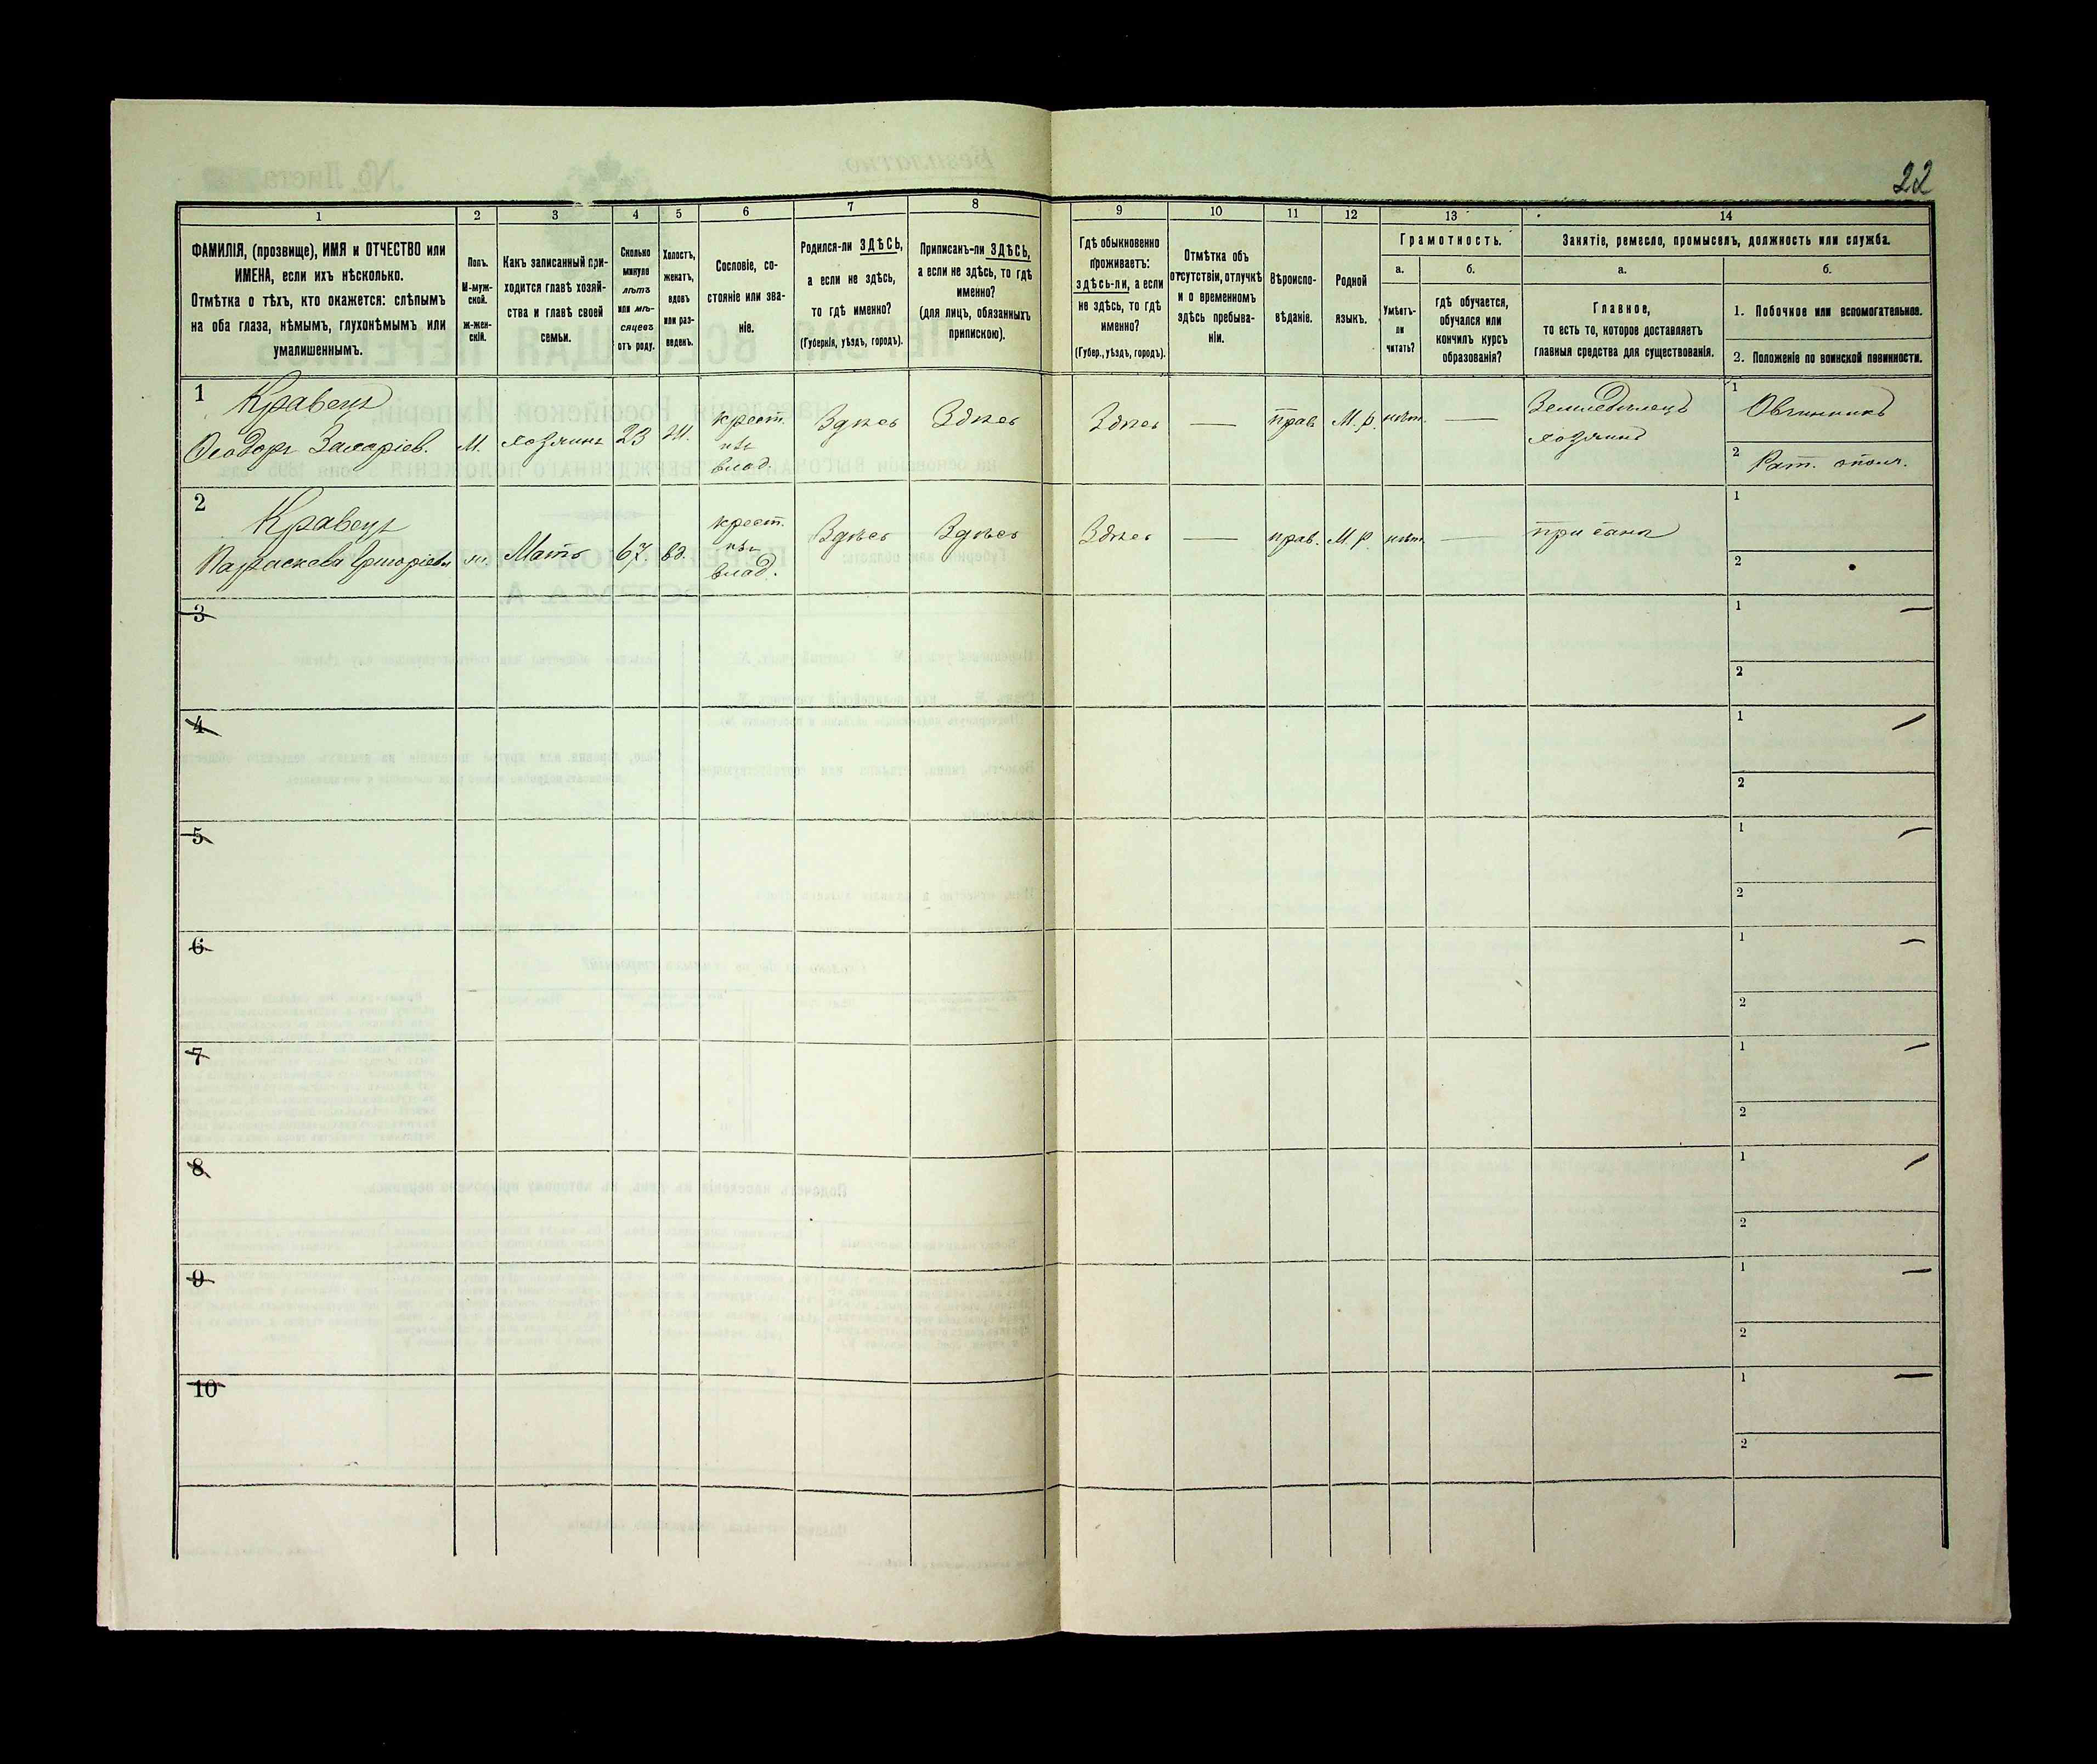 22
1 2 3 4 5 6 7 8 9 10 11 12 13 14
ФАМИЛІЯ, (прозвище), ИМЯ и ОТЧЕСТВО или
ИМЕНА, если ихъ нѣсколько.
Отмѣтка о тѣхъ, кто окажется: слѣпымъ
на оба глаза, нѣмымъ, глухонѣмымъ или
умалишеннымъ.
Полъ.
М-муж-
ской.
Ж-жен-
скій.
Какъ записанный при-
ходится главѣ хозяй-
ства и главѣ своей
семьи.
Сколько
минуло
лѣтъ
или мѣ-
сяцевъ
отъ роду.
Холостъ,
женатъ,
вдовъ
или раз-
веденъ.
Сословіе, со-
стояніе или зва-
ніе.
Родился-ли ЗДѢСЬ,
а если не здѣсь,
то гдѣ именно?
(Губернія, уѣздъ, городъ).
Приписанъ-ли ЗДѢСЬ,
а если не здѣсь, то гдѣ
именно?
(для лицъ, обязанныхъ
припискою).
Гдѣ обыкновенно
проживаетъ:
здѣсь-ли, а если
не здѣсь, то гдѣ
именно?
(Губер., уѣздъ, городъ).
Отмѣтка объ
отсутствіи, отлучкѣ
и о временномъ
здѣсь пребыва-
ніи.
Вѣроиспо-
вѣданіе.
Родной
языкъ.
Грамотность.
а.
Умѣетъ-
ли
читать?
б.
гдѣ обучается,
обучался или
кончилъ курсъ
образованія?
Занятіе, ремесло, промыселъ, должность или служба.
а.
Главное,
то есть то, которое доставляетъ
главныя средства для существованія.
б.
1. Побочное или вспомогательное.
2. Положеніе по воинской повинности.
1
Кравецъ
Ѳеодоръ Захаріев.
М.
хозяинъ
23
крест.
изъ
влад.
Здѣсь
Здѣсь
Здѣсь
—
прав.
М. р.
нѣт.
—
Земледѣлецъ
хозяинъ
1 Овчинникъ
2 Рат. ополч.
2
Кравецъ
Параскева Григоріевн
Мать
67
вд.
крест.
изъ
влад.
Здѣсь
Здѣсь
Здѣсь
—
прав.
М. р.
нѣт.
—
при сынѣ
1
2
3
1
2
4
1
2
5
1
2
6
1
2
7
1
2
8
1
2
9
1
2
10
1
2